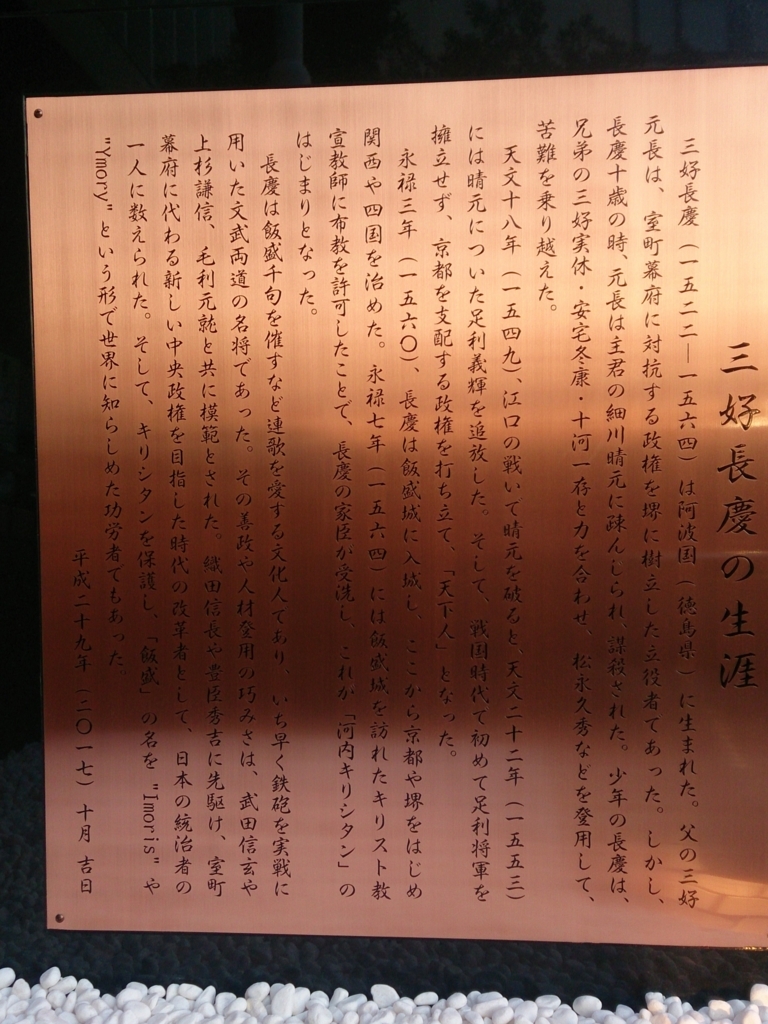 三好長慶の生涯
三好長慶（一五二二―一五六四）は阿波国（徳島県）に生まれた。父の三好
元長は、室町幕府に対抗する政権を堺に樹立した立役者であった。しかし、
長慶十歳の時、元長は主君の細川晴元に疎んじられ、謀殺された。少年の長慶は、
兄弟の三好実休・安宅冬康・十河一存と力を合わせ、松永久秀などを登用して、
苦難を乗り越えた。
天文十八年（一五四九）、江口の戦いで晴元を破ると、天文二十二年（一五五三）
には晴元についた足利義輝を追放した。そして、戦国時代で初めて足利将軍を
擁立せず、京都を支配する政権を打ち立て、「天下人」となった。
永禄三年（一五六〇）、長慶は飯盛城に入城し、ここから京都や堺をはじめ
関西や四国を治めた。永禄七年（一五六四）には飯盛城を訪れたキリスト教
宣教師に布教を許可したことで、長慶の家臣が受洗し、これが「河内キリシタン」の
はじまりとなった。
長慶は飯盛千句を催すなど連歌を愛する文化人であり、いち早く鉄砲を実戦に
用いた文武両道の名将であった。その善政や人材登用の巧みさは、武田信玄や
上杉謙信、毛利元就と共に模範とされた。織田信長や豊臣秀吉に先駆け、室町
幕府に代わる新しい中央政権を目指した時代の改革者として、日本の統治者の
一人に数えられた。そして、キリシタンを保護し、「飯盛」の名を "Imoris" や
"Ymory" という形で世界に知らしめた功労者でもあった。
平成二十九年（二〇一七）十月 吉日